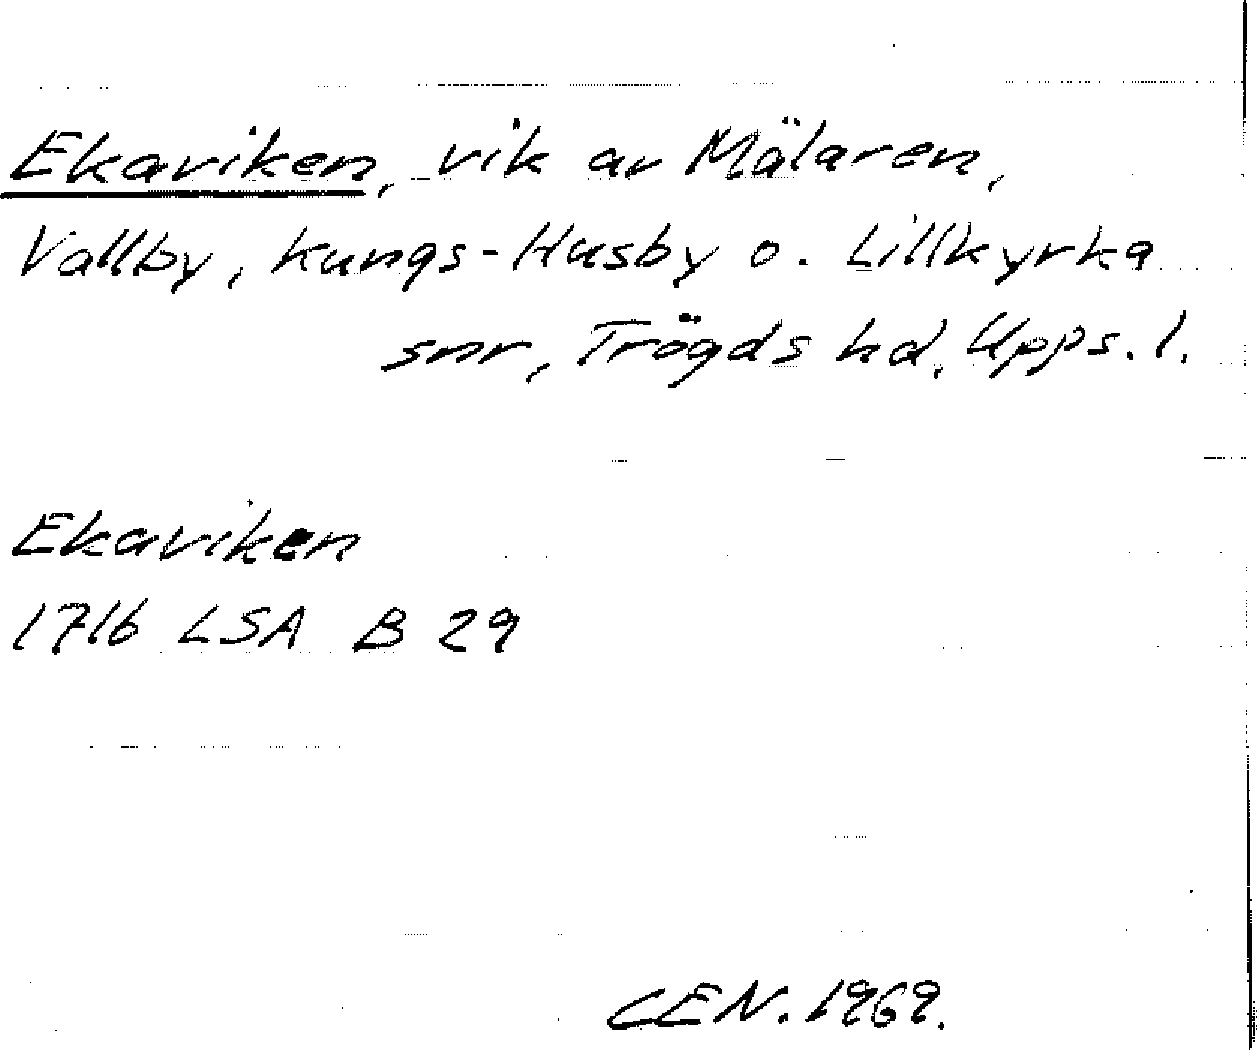 Ekaviken, vik av Mälaren,
Vallby, Kungs-Husby o. Lillkyrka
snr, Trögds hd, Upps. l.
Ekaviken
1716 LSA B 29
CEN. 1969.